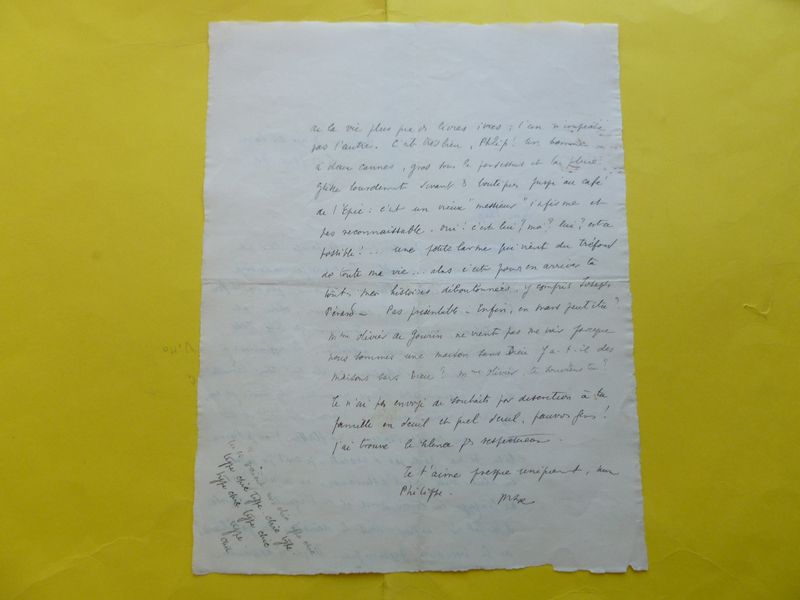 de la vie plus que des livres ivres ; l'un n'empêche
pas l'autre. C'est très bien, Philip! un homme
à deux cannes, gros sous le pardessus et la pluie
glisse lourdement devant 3 boutiques jusqu'au café
de l'Epée : c'est un vieux "messieur" infirme et
pas reconnaissable. oui! c'est lui! moi? lui? est-ce
possible!... une petite larme qui vient du tréfond
de toute ma vie... alas c'est pour en arriver là
toutes mes histoires déboutonnées, y compris Joseph
Pérard — Pas présentable — Enfin, en mars peut-être?
Mme Olivier de Gourin ne vient pas me voir parce que
nous sommes une maison sans Dieu. Y a-t-il des
maisons sans Dieu? Mme Olivier, te souviens-tu?
Je n'ai pas envoyé de souhaits par discrétion à ta
famille en deuil et quel deuil, pauvres gens!
J'ai trouvé le silence plus respectueux.
Je t'aime presque uniquement, mon
Philippe.
Max
type chic type chic
type chic type chic type
type chic type chic
type
chic